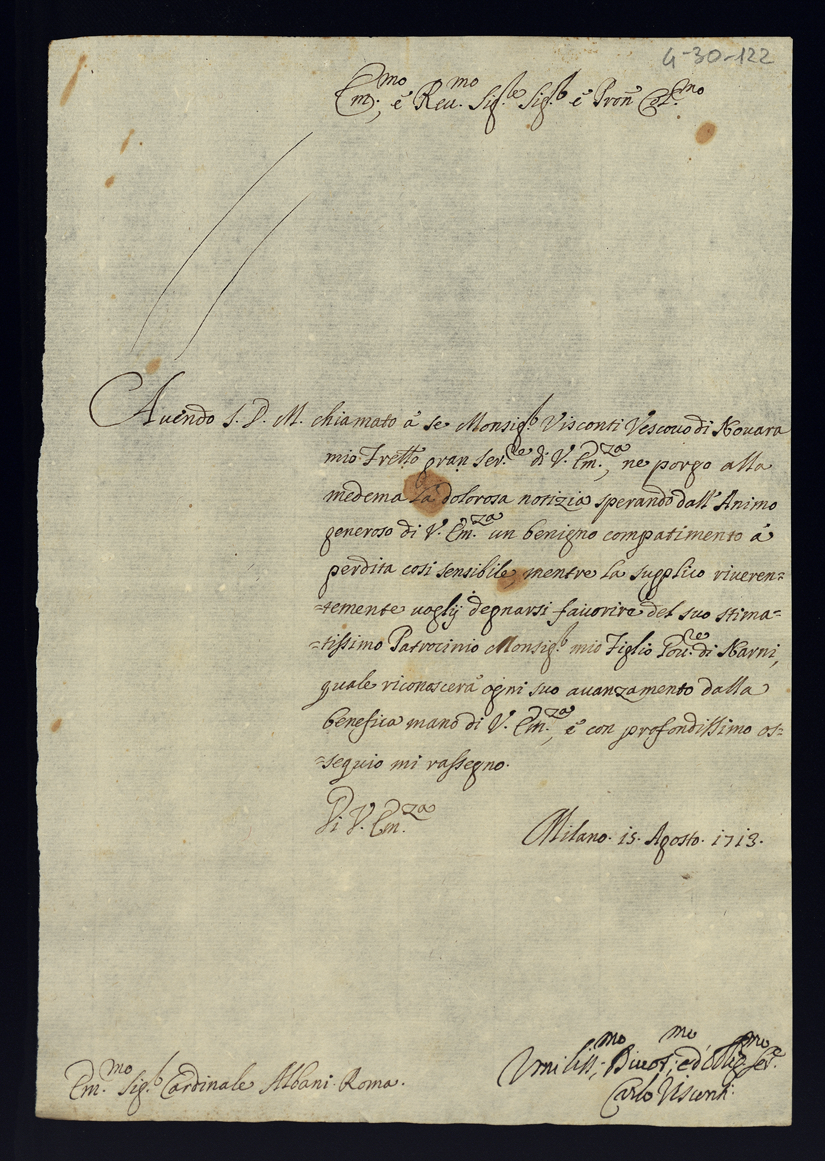 4-30-122
Em.mo, è Reu.mo Sig.re Sig.r è Pron Col.mo
Auendo S. D. M. chiamato à se Monsig.r Visconti Vescouo di Nouara
mio Frello gran Ser.re di V. Em.za, ne porgo alla
medema la dolorosa notizia sperando dall' Animo
generoso di V. Em.za un benigno compatimento à
perdita così sensibile, mentre la supplico riueren=
=temente uoglij degnarsi fauorire del suo stima=
=tissimo Patrocinio Monsig.r mio Figlio Gou.re di Narni,
quale riconoscerà ogni suo auanzamento dalla
benefica mano di V. Em.za, è con profondissimo os=
=sequio mi rassegno.
Di V. Em.za
Milano. 15. Agosto. 1713.
Umiliss.mo, Diuot.mo, ed Oblig.mo Ser.e
Carlo Visconti
Em.mo Sig.r Cardinale Albani. Roma.